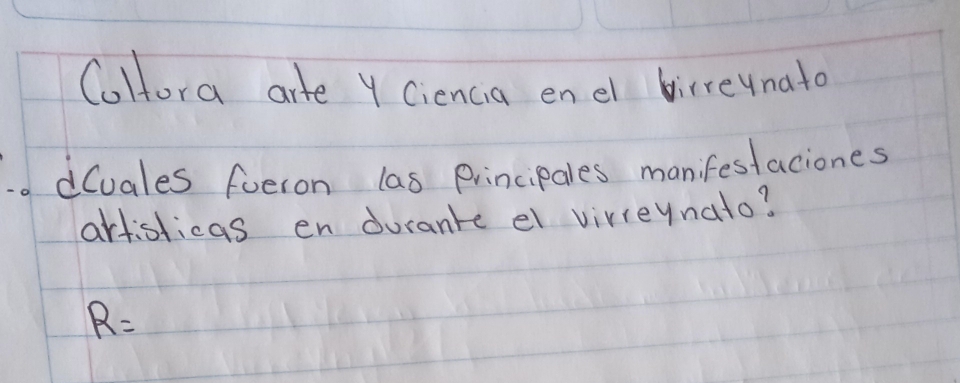 Cultura arte y Ciencia en el virreynato
-o ¿Cuales fueron las Principales manifestaciones
artisticas en durante el virreynato?
R=